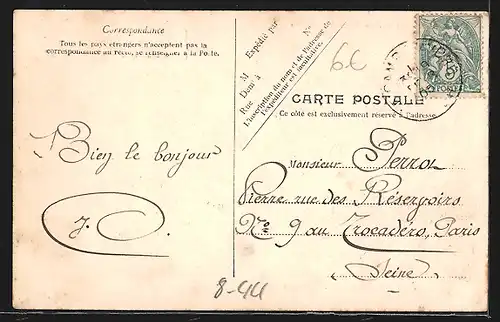 Correspondance
Tous les pays étrangers n'acceptent pas la
correspondance au recto, se renseigner à la Poste.
Bien le bonjour
J. O.
Expédié par
M
Demt à
Rue
No
L'inscription du nom et de l'adresse de
l'expéditeur est facultative.
6€
CARTE POSTALE
Ce côté est exclusivement réservé à l'adresse
Monsieur Perrot
Pierre rue des Réservoirs
No 9 au Trocadéro, Paris
Seine
8-44
5
POSTES